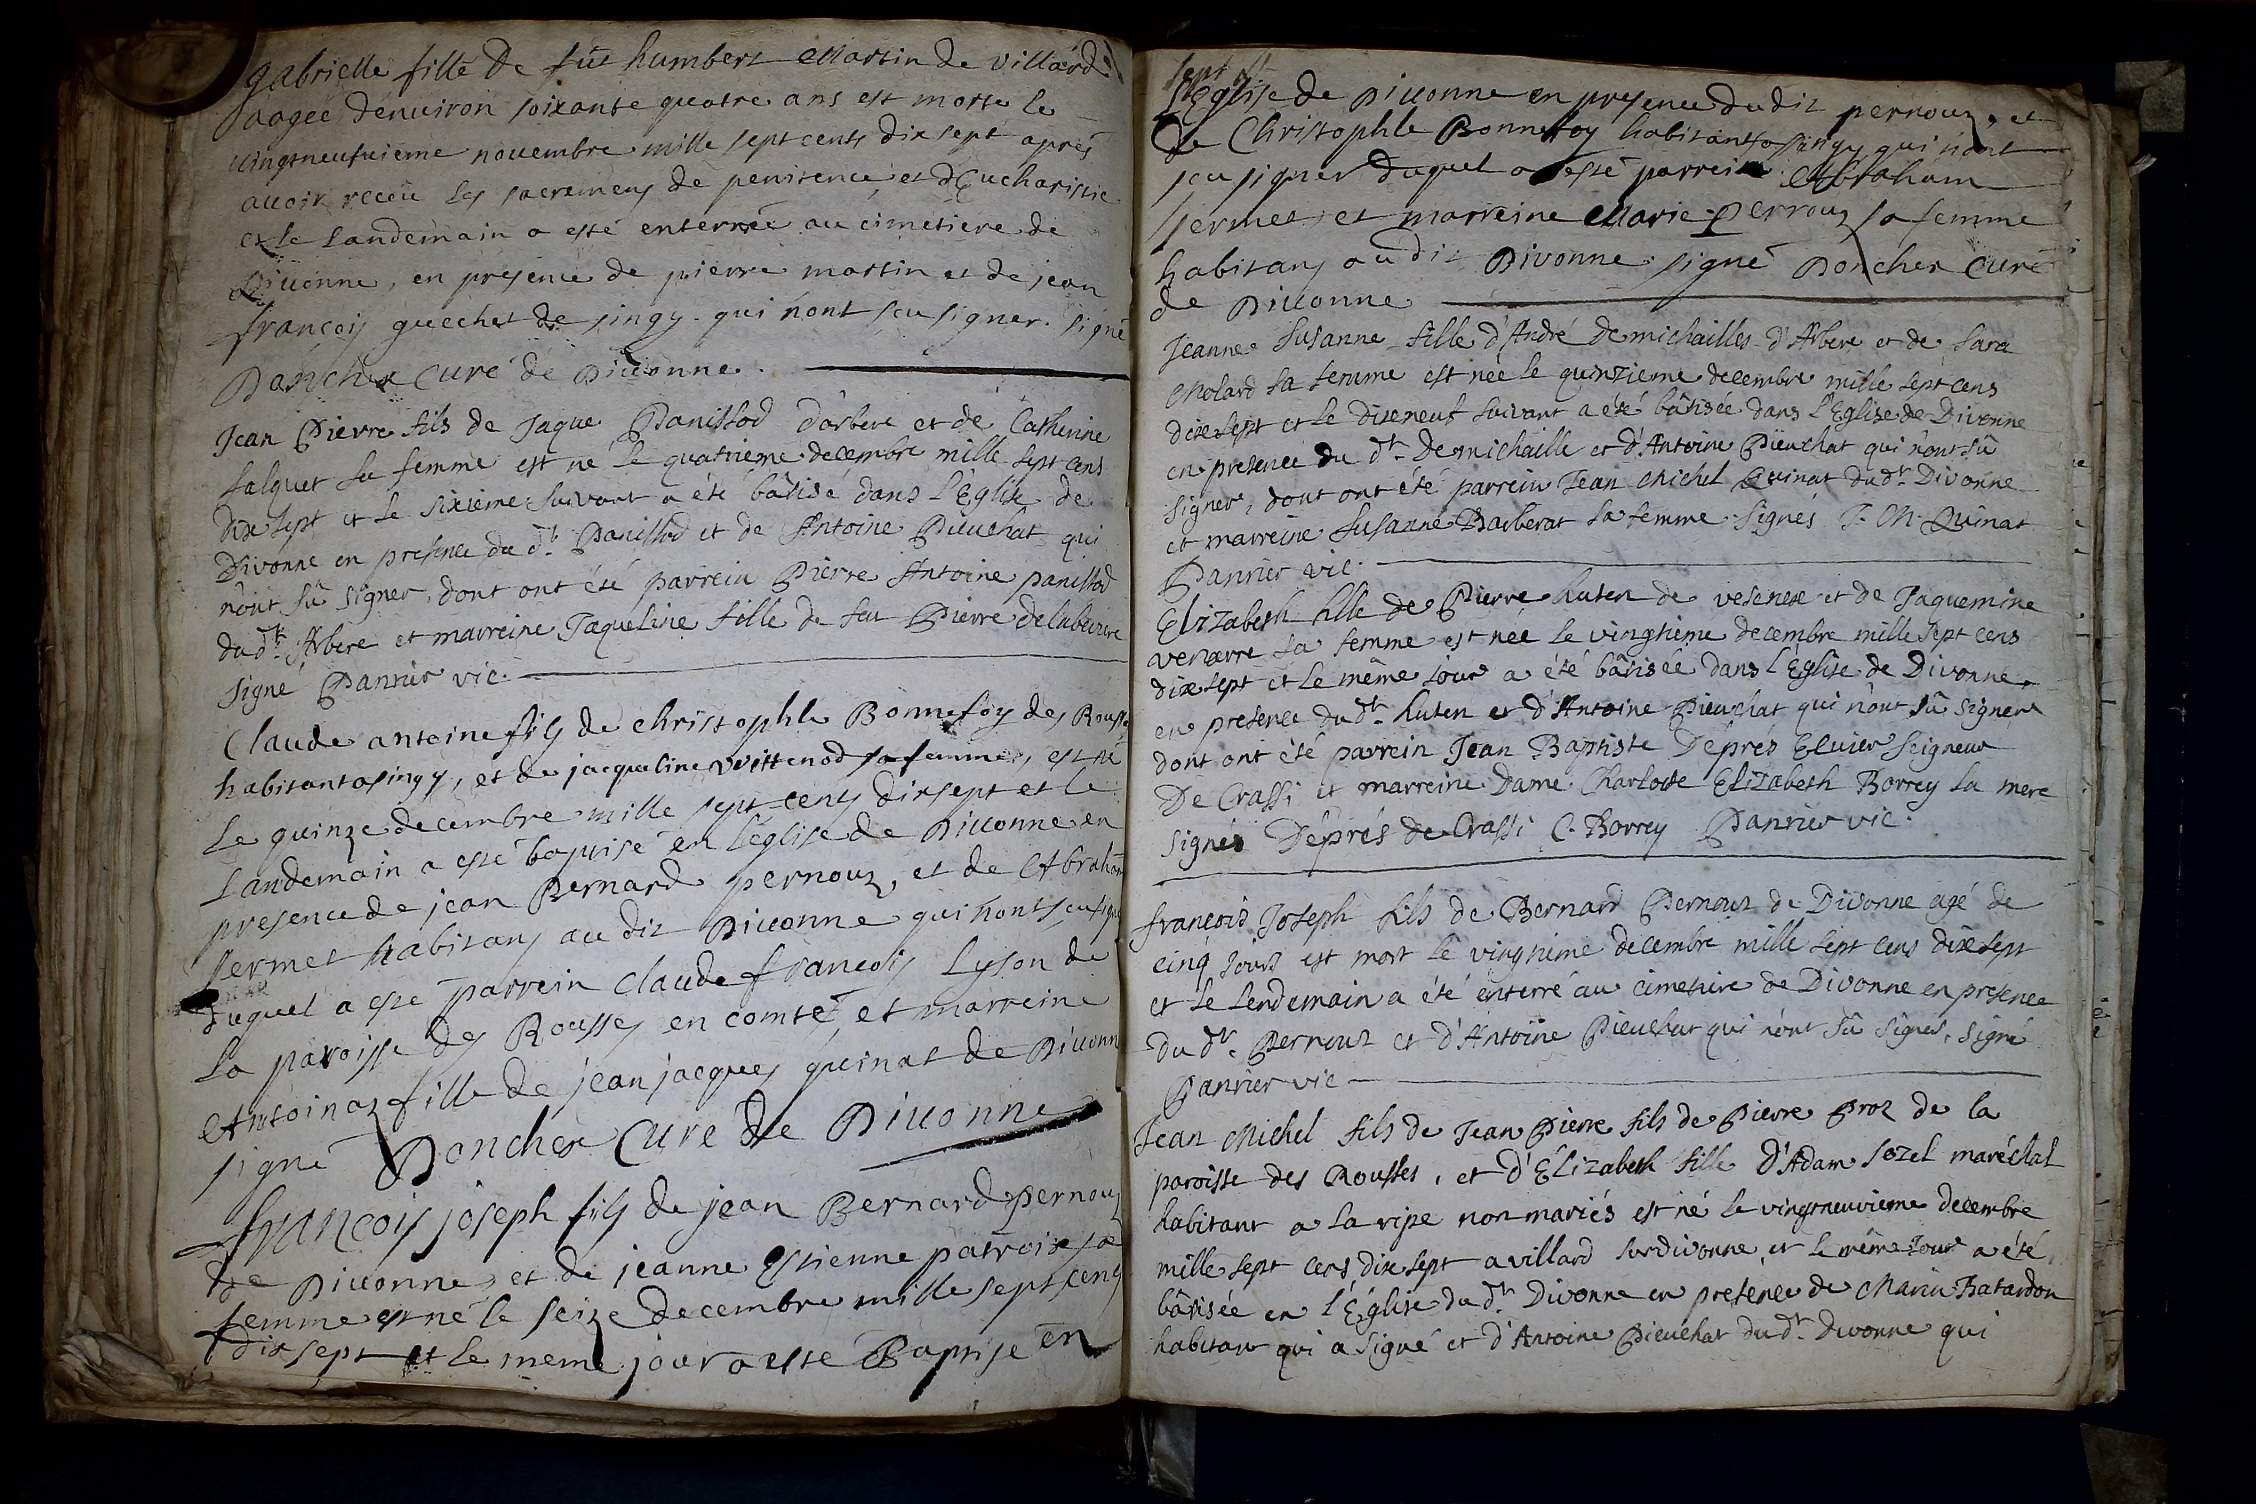 gabrielle fille de fut humbert Martin de villard
aagée d'enuiron soixante quatre ans est morte le
vingtneufuieme nouembre mille sept cents dix sept aprés
auoir receu les sacremens de penitence et d'Eucharistie
et le landemain a esté enterrée au cimetiere de
Diuonne, en presence de pierre martin et de jean
françois guechet de singy. qui n'ont scu signer. signé
Doncher curé de Diuonne.
Jean Pierre fils de Jaque Panissod d'arbere et de Catherine
Salquet sa femme est né le quatrieme decembre mille sept cens
dix sept et le sixieme suivant a été bâtisé dans l'Eglise de
Divonne en presence du dt. Panissod et de Antoine Pieuchat qui
n'ont sû signer, dont ont été parrein Pierre Antoine panissod
du dt. Arbere et marreine Jaqueline fille de feu Pierre
signé Panrier vic.
Claude antoine fils de christophle Bonnefoy des Rousses
habitant a singy, et de jacqueline Wittenod sa femme, est né
le quinze decembre mille sept cents dix sept et le
landemain a esté baptisé en l'eglise de Diuonne en
presence de jean Bernard pernouz, et de Abraham
sermet habitans au dit Diuonne qui n'ont scu signer
duquel a esté parrein claude françois Lyson de
la paroisse des Rousses en comté, et marreine
Antoinaz fille de jean jacques quinat de Diuonne
signé Doncher Curé de Diuonne
françois joseph fils de jean Bernard pernouz
de Diuonne, et de jeanne Estienne patroix sa
femme est né le seize decembre mille sept cens
dix sept et le meme jour a esté Baptisé en
l'Eglise de Diuonne en presence du dit pernouz, et
de Christophle Bonnefoy habitant a singy qui n'ont
scu signer duquel a esté parrein Abraham
sermet et marreine Marie Perrouz sa femme
habitans au dit Divonne signé Doncher Curé
de Diuonne
Jeanne Susanne fille d'André Demichailles d'Arbere et de Sara
Molard sa femme est née le quinzieme decembre mille sept cens
dixsept et le dixneuf suivant a été bâtisée dans l'Eglise de Divonne
en presence du dt. Demichaille et d'Antoine Pieuchat qui n'ont sû
signer, dont ont été parrein Jean Michel Quinat du dt. Divonne
et marreine Susanne Barberat sa femme signés J. M. Quinat
Panrier vic.
Elizabeth fille de Pierre Huten de vesenex et de Jaquemine
sa femme est née le vingtieme decembre mille sept cens
dixsept et le même jour a été bâtisée dans l'Eglise de Divonne,
en presence du dt. Huten et d'Antoine Pieuchat qui n'ont sû signer
dont ont été parrein Jean Baptiste Déprés Ecuier Seigneur
De Crassi et marreine Dame Charlotte Elizabeth Borrey sa mere
signés Déprés de Crassi C. Borrey Panrier vic.
françois Joseph fils de Bernard Pernouz de Divonne agé de
cinq jours est mort le vingtieme decembre mille sept cens dixsept
et le lendemain a été enterré au cimetiere de Divonne en presence
du dt. Pernouz et d'Antoine Pieuchat qui n'ont sû signer, signé
Panrier vic
Jean Michel fils de Jean Pierre fils de Pierre Proz de la
paroisse des Rousses, et d'Elizabeth fille d'Adam maréchal
habitant a la ripe non mariés est né le vingtneuvieme decembre
mille sept cens dixsept a villard sur divonne et le même jour a été
bâtisée en l'Église du dt. Divonne en presence de Marin
habitant qui a signé et d'Antoine Pieuchat du dt. Divonne qui